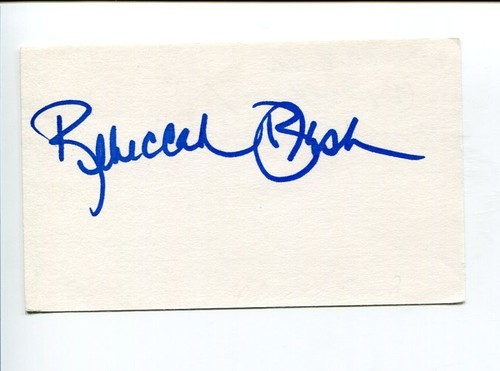 Rebeccah Bush